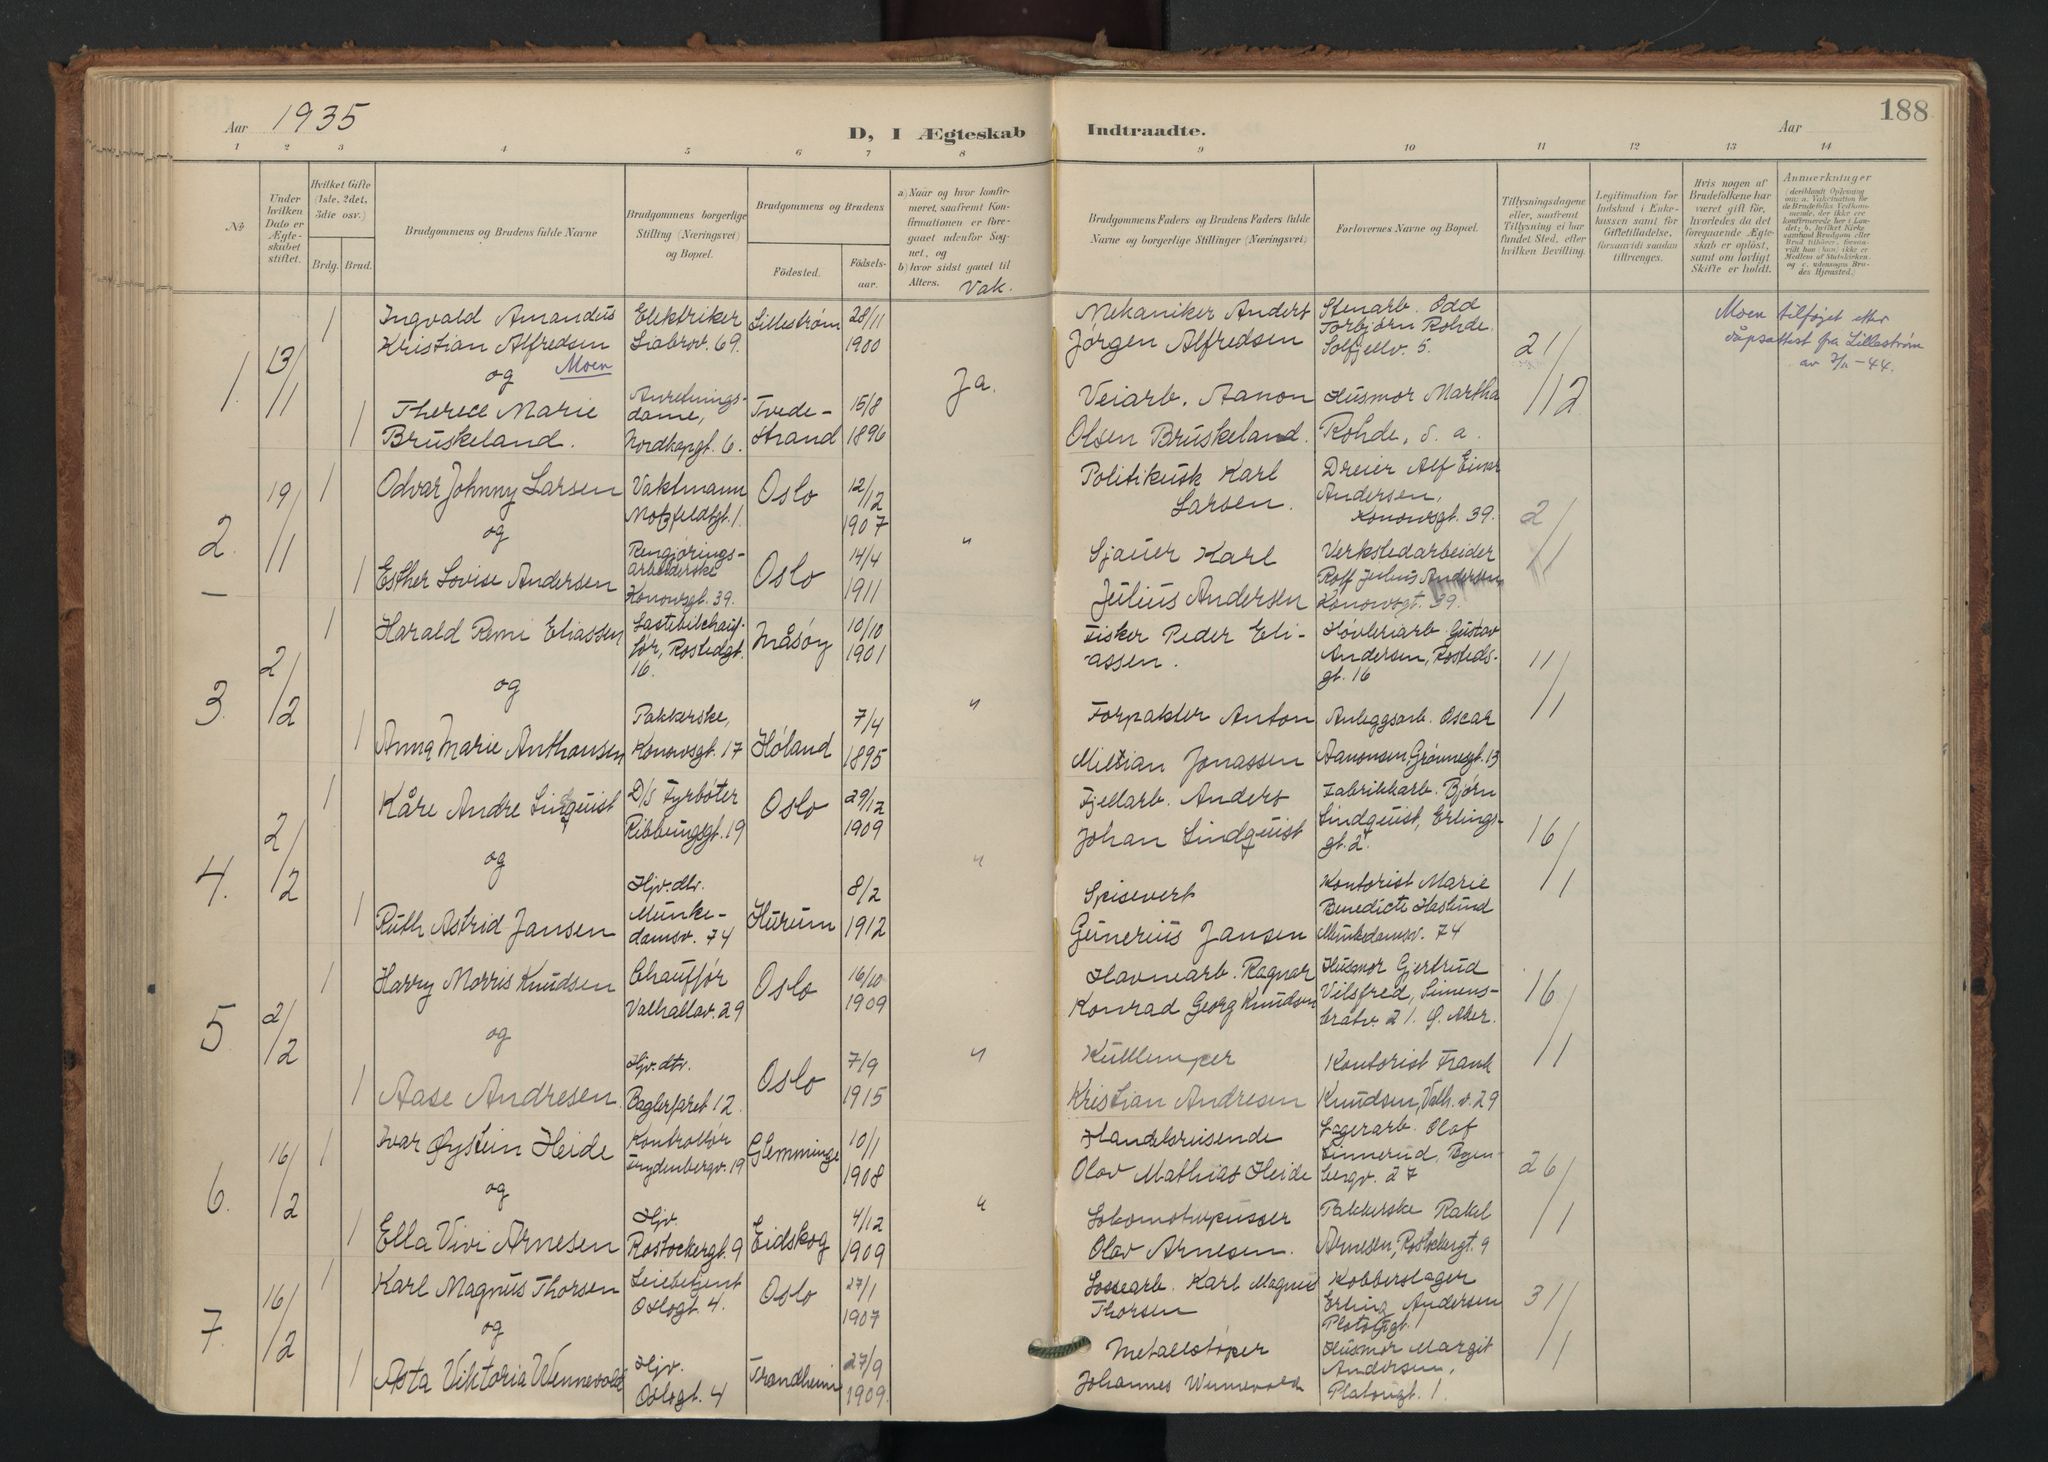 188
Aar 1935
D, I Ægteskab Indtraadte.
Aar
1 2 3 4 5 6 7 8 9 10 11 12 13 14
No.
Under hvilken Dato er Ægteskabet stiftet.
Hvilket Gifte (1ste, 2det, 3die osv.)
Brdg. Brud.
Brudgommens og Brudens fulde Navne
Brudgommens borgerlige Stilling (Næringsvei) og Bopæl.
Brudgommens og Brudens
Födested.
Födselsaar.
a) Naar og hvor konfirmeret, saafremt Konfirmationen er foregaaet udenfor Sognet, og
b) hvor sidst gaaet til Alters.
Vak.
Brudgommens Faders og Brudens Faders fulde Navne og borgerlige Stillinger (Næringsvei)
Forlovernes Navne og Bopæl.
Tillysningsdagene eller, saafremt Tillysning ei har fundet Sted, efter hvilken Bevilling.
Legitimation for Indskud i Enkekassen samt for Giftetilladelse, forsaavidt saadan tiltrænges.
Hvis nogen af Brudefolkene har været gift før, hvorledes da det foregaaende Ægteskab er opløst, samt om lovligt Skifte er holdt.
Anmærkninger
(deriblandt Oplysning om: a. Vakcination for Brudefolks Vedkommende, der ikke ere konfirmerede her i Landet; b. hvilket Kirkesamfund Brudgom eller Brud tilhører, forsaavidt han (hun) ikke er Medlem af Statskirken, og c. udensogns Brudes Hjemsted.)
1. 13/11 1 Ingvald Amandus Kristian Alfredsen Moen
Elektriker Liabrov. 69.
Lillestrøm 28/11 1900
Mekaniker Anders Jørgen Alfredsen
Stenarb. Odd Torbjørn Rohde. Solfjellv. 5.
21/12
Moen tilføjet etter dåpsattest fra Lillestrøm av 7/11-44.
og
Ja.
1 Therece Marie Bruskeland.
Anretningsdame, Nordkapgt. 6.
Tvedestrand 15/8 1896
Veiarb. Aanon Olsen Bruskeland.
Husmor Martha Rohde, s. a.
2. 19/11 1 Odvar Johnny Larsen
Vaktmann Motzfeldtgt. 1.
Oslo 12/12 1907
Politikusk Karl Larsen.
Dreier Alf Einar Andersen, Konowsgt. 39.
2/11
og
"
1 Esther Lovise Andersen
Rengjøringsarbeiderske Konowsgt. 39.
Oslo 14/4 1911
Sjauer Karl Julius Andersen
Verkstedarbeider Rolf Julius Andersen Konowsgt. 39.
3. 2/2 1 Harald Remi Eliassen
Lastebilchauffør, Rostedgt. 16.
Måsøy 10/10 1901
Fisker Peder Eliassen.
Høvleriarb. Gustav Andersen, Rostedsgt. 16
11/1
og
"
1 Anna Marie Anthonsen
Pakkerske, Konowsgt. 17
Høland 7/4 1895
Forpakter Anton Miltian Jonassen
Anleggsarb. Oscar Aanonsen, Grønnegt. 13
4. 2/2 1 Kåre Andre Lindquist
D/S Fyrbøter Ribbungsgt. 19
Oslo 29/12 1909
Fjellarb. Anders Johan Lindquist
Fabrikkarb. Bjørn Lindquist, Erlingsgt. 2.
16/1
og
"
1 Ruth Astrid Jansen
Hjv. dtr. Munkedamsv. 74
Hurum 8/2 1912
Spisevert Gunerius Jansen
Kontorist Marie Benedicte Haslund Munkedamsv. 74
5. 2/2 1 Harry Morris Knudsen
Chauffør Valhallav. 29
Oslo 16/10 1909
Havnearb. Ragnar Konrad Georg Knudsen
Husmor Gjertrud Vilsfred, Simensbråtv. 21. Ø. Aker.
16/1
og
"
1 Aase Andresen
Hjv. dtr. Baglerfaret 12.
Oslo 7/9 1915
Kullemper Kristian Andresen
Kontorist Frank Knudsen, Valh. v. 29
6. 16/2 1 Ivar Øystein Heide
Kontrollør Frydenbergv. 19
Glemminge 10/1 1908
Handelsreisende Olav Mathias Heide
Lagerarb. Olaf Linnerud, Bogenbergv. 27
26/1
og
"
1 Ella Vivi Arnesen
Hjv. Rostockergt. 9
Eidskog 4/12 1909
Lokomotivpusser Olav Arnesen.
Pakkerske Rakel Arnesen, Rostockergt. 9
7. 16/2 1 Karl Magnus Thorsen
Leiebetjent Oslogt. 4.
Oslo 27/1 1907
Lossearb. Karl Magnus Thorsen
Kobberslager Erling Andersen Platougt.
31/1
og
1 Asta Viktoria Wennevold
Hjv. Oslogt. 4
Trondheim 27/9 1909.
Metallstøper Johannes Wennevold
Husmor Margit Andersen, Platougt. 1.